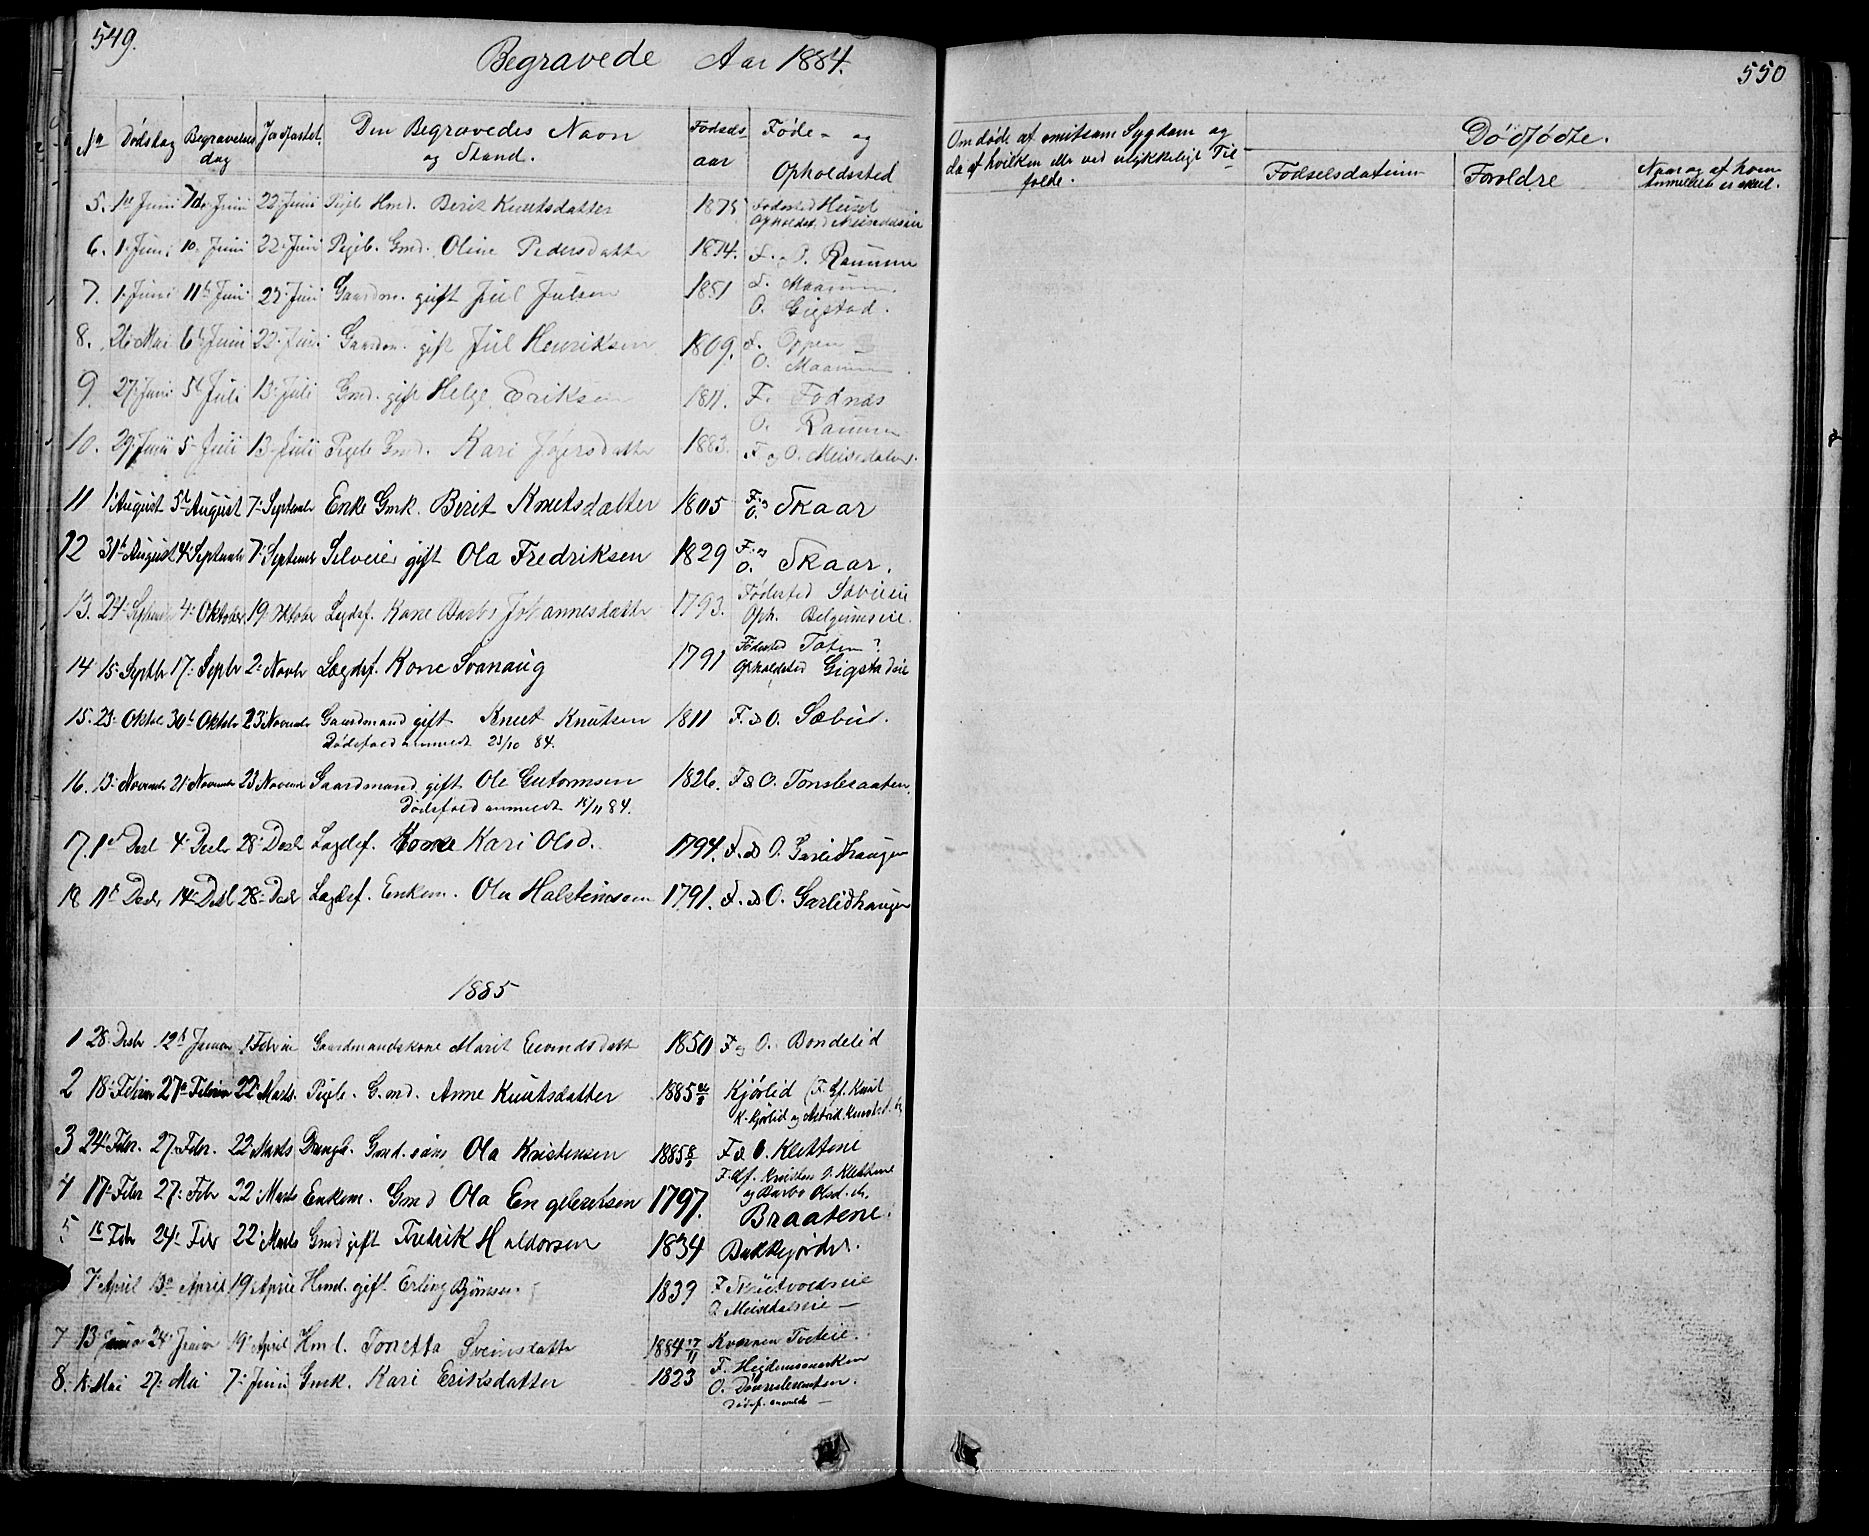 549.
Begravede Aar 1884.
No Dødsdag Begravelses dag Jordfæstet. Den Begravedes Navn og Stand. Fødselsaar Føde- og Opholdssted
5. 1ste Juni 7de Juni 22 Juni Pigeb. Hmd. Berit Knutsdatter 1875 Fødested Opholdst.
6. 1. Juni 10. Juni 22. Juni Pigeb. Gmd. Oline Pedersdatter 1874. F. og O. Raumme
7. 1. Juni 11te Juni 23. Juni Gaardm. gift Juul Julsen 1851 F. Maanum. O. Gigstad.
8. 26 Mai 6te Juni 22. Juni Gaardm. gift Juul Henriksen 1809. F. Oppen O. Maanum
9. 27. Juni 5te Juli 13. Juli Gmd. gift Helge Eriksen 1811. F. Fodnæs O. Raumme
10. 29. Juni 5. Juli 13. Juli Pigeb. Gmd. Kari 1883. F. og O. Meisedalen.
11 1. August 5te August 7. September Enke Gmk. Berit Knutsdatter 1805 F. og O. Skaar
12 31te August 4. Septembr 7. Septembr Selveier gift Ola Fredriksen 1829 F. og O. Skaar.
13. 24. September 4. Oktober 19. Oktober Lægdsf. Kone Barbo Johannesdatter 1793. Fødested Oph.
14 15. Septbr 17. Septbr 2. Novbr Lægdsf. Kone Svanaug 1791 Fødested Toten? Opholdsted Gigstadeie
15. 23. Oktbr 30te Oktobr 23 Novembr Gaardmand gift Knut Knutsen 1811 F. & O. Sæbue.
Dødsfald anmeldt 23/10 84.
16. 13. Novembr 21 Novembr 23 Novembr Gaardmand gift Ole Gutormsen 1826. F & O. Tonslesaaten.
Dødsfald anmeldt 18/11 84.
17. 1ste Desbr 4. Desbr 28. Desbr Lægdsf. Kone Kari Olsd. 1794. F. & O. Garlidhaugen
18 11te Desbr 14. Desbr 28. Desbr Lægdsf. Enkem. Ola Halsteinson 1791. F. & O. Garlidhaugen
1885
1 28. Desbr 12te Januar 1 Februar Gaardmandskone Marit Eivindsdatt 1850 F og O. Bondelid
2 18. Februar 27. Februar 22. Marts. Pigeb. G.md. Anne Knutsdatter 1885 Kjørlid (F. Gf. Knut K. Kjørlid og Astrid Knutsd.
3 24. Febr. 27. Febr. 22 Marts Drengb. Gmd. søns Ola Kristensen 1885 F & O. Klettene
F. Gf. Kristen O. Klettene og Barbo Olsd.
4 17. Febr 27. Febr 22 Marts Enkem. Gmd Ola Engebretsen 1797. Braatene.
5 Febr 24. Febr 22 Marts Gmd gift Fredrik Haldorsen 1834 Bakkejordet.
7. April 13. April 19. April Hmd. gift Erling Bjørnsen 1839 F O. Meisedalseie
7 13. Januar 24. Januar 19. April Hmd. Tonetta Sveinsdatter 1884 17/11 Kværnen Tveteie.
8. Mai 27. Mai 7. Juni Gmk. Kari Eriksdatter 1823 F. O.
Dødsf. anmeldt
550
Om døde af smitsom Sygdom og da af hvilken eller ved ulykkeligt Tilfælde.
Dødfødte.
Fødselsdatum Forældre Naar og af hvem Anmeldelse er skeet.